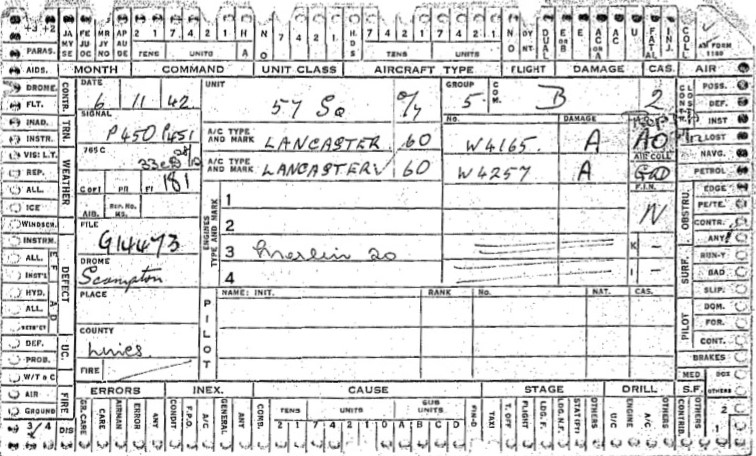 +3 +2 JA MY SE FE JU OC MR JY NO AP AU DE 7 4 2 1 7 4 2 1 H NO 7 4 2 1 HDS 7 4 2 1 7 4 2 1 NO DUAL E OR B E AC OR A AC U FATAL INJ. COLL AM FORM 1180
TENS UNITS A TENS UNITS
PARAS. MONTH COMMAND UNIT CLASS AIRCRAFT TYPE FLIGHT DAMAGE CAS. AIR
AIDS. DROME. FLT. INAD. INSTR. CONTR. TRN.
DATE 6 11 42 UNIT 57 Sq GROUP 5 COM. B 2
POSS. DEF. INST LOST NAVG. PETROL
SIGNAL P450 P451
No. DAMAGE
A/C TYPE AND MARK LANCASTER 60 W4165. A AO
AIR COLL
765C
A/C TYPE AND MARK LANCASTER 60 W4257 A
F.I.N.
N
VIS: L.T. REP. ALL. ICE WINDSCR. WEATHER
181
FILE G14473
ENGINES TYPE AND MARK
1
2
3 Merlin 20 K -
4 I -
EDGE PE/TE. CONTR. ANY OBSTRU.
RUN-Y BAD SLIP. SURF.
DOM. FOR. CONT. PILOT
BRAKES
INSTRM. ALL. INST'L HYD. ALL. DEFECT
DROME Scampton
PLACE
PILOT
NAME: INIT. RANK No. NAT. CAS.
COUNTY Lincs
FIRE
DEF. PROB. W/T & C UC.
AIR GROUND FIRE
MED OTHERS
S.F. 2 1
ERRORS INEX. CAUSE STAGE DRILL
3/4 DIS GR. CARE CARE AIRMAN ERROR ANY CONDIT F.P.O. A/C GENERAL ANY COMB. TENS UNITS SUB UNITS 2 1 7 4 2 1 0 A B C D FIN-D TAXI T. OFF FLIGHT LDG. F. LDG. N.F. STAT(PT) OTHERS U/C ENGINE A/C OTHERS CONTRIB. OTHERS